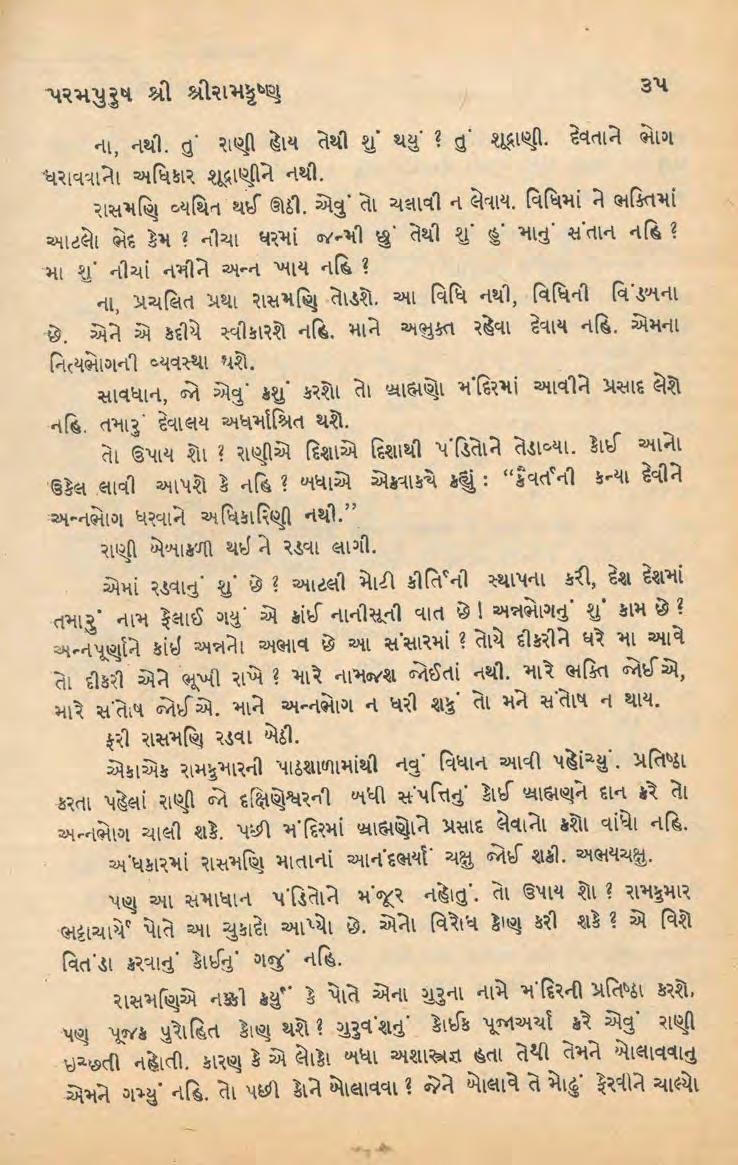 પરમપુરુષ શ્રી શ્રીરામકૃષ્ણ ૩૫
ના, નથી. તું રાણી હોય તેથી શું થયું ? તું શૂદ્રાણી. દેવતાને ભોગ
ધરાવવાનો અધિકાર શૂદ્રાણીને નથી.
રાસમણિ વ્યથિત થઈ ઊઠી. એવું તો ચલાવી ન લેવાય. વિધિમાં ને ભક્તિમાં
આટલો ભેદ કેમ ? નીચા ઘરમાં જન્મી છું તેથી શું હું માનું સંતાન નહિ ?
મા શું નીચાં નમીને અન્ન ખાય નહિ ?
ના, પ્રચલિત પ્રથા રાસમણિ તોડશે. આ વિધિ નથી, વિધિની વિડંબના
છે. એને એ કદીયે સ્વીકારશે નહિ. માને અભુક્ત રહેવા દેવાય નહિ. એમના
નિત્યભોગની વ્યવસ્થા થશે.
સાવધાન, જો એવું કશું કરશો તો બ્રાહ્મણો મંદિરમાં આવીને પ્રસાદ લેશે
નહિ. તમારું દેવાલય અધર્માશ્રિત થશે.
તો ઉપાય શો ? રાણીએ દિશાએ દિશાથી પંડિતોને તેડાવ્યા. કોઈ આનો
ઉકેલ લાવી આપશે કે નહિ ? બધાએ એકવાક્યે કહ્યું : “કૈવર્તની કન્યા દેવીને
અન્નભોગ ધરવાને અધિકારિણી નથી.”
રાણી બેબાકળી થઈ ને રડવા લાગી.
એમાં રડવાનું શું છે ? આટલી મોટી કીર્તિની સ્થાપના કરી, દેશ દેશમાં
તમારું નામ ફેલાઈ ગયું એ કાંઈ નાનીસૂની વાત છે ! અન્નભોગનું શું કામ છે ?
અન્નપૂર્ણાને કાંઈ અન્નનો અભાવ છે આ સંસારમાં ? તોયે દીકરીને ઘરે મા આવે
તો દીકરી એને ભૂખી રાખે ? મારે નામજશ જોઈતાં નથી. મારે ભક્તિ જોઈએ,
મારે સંતોષ જોઈએ. માને અન્નભોગ ન ધરી શકું તો મને સંતોષ ન થાય.
ફરી રાસમણિ રડવા બેઠી.
એકાએક રામકુમારની પાઠશાળામાંથી નવું વિધાન આવી પહોંચ્યું. પ્રતિષ્ઠા
કરતા પહેલાં રાણી જો દક્ષિણેશ્વરની બધી સંપત્તિનું કોઈ બ્રાહ્મણને દાન કરે તો
અન્નભોગ ચાલી શકે. પછી મંદિરમાં બ્રાહ્મણોને પ્રસાદ લેવાનો કશો વાંધો નહિ.
અંધકારમાં રાસમણિ માતાનાં આનંદભર્યાં ચક્ષુ જોઈ શકી. અભયચક્ષુ.
પણ આ સમાધાન પંડિતોને મંજૂર નહોતું. તો ઉપાય શો ? રામકુમાર
ભટ્ટાચાર્યે પોતે આ ચુકાદો આપ્યો છે. એનો વિરોધ કોણ કરી શકે ? એ વિશે
વિતંડા કરવાનું કોઈનું ગજું નહિ.
રાસમણિએ નક્કી કર્યું કે પોતે એના ગુરુના નામે મંદિરની પ્રતિષ્ઠા કરશે.
પણ પૂજક પુરોહિત કોણ થશે ? ગુરુવંશનું કોઈક પૂજાઅર્ચા કરે એવું રાણી
ઇચ્છતી નહોતી. કારણ કે એ લોકો બધા અશાસ્ત્રજ્ઞ હતા તેથી તેમને બોલાવવાનુ
એમને ગમ્યું નહિ. તો પછી કોને બોલાવવા ? જેને બોલાવે તે મોઢું ફેરવીને ચાલ્યો